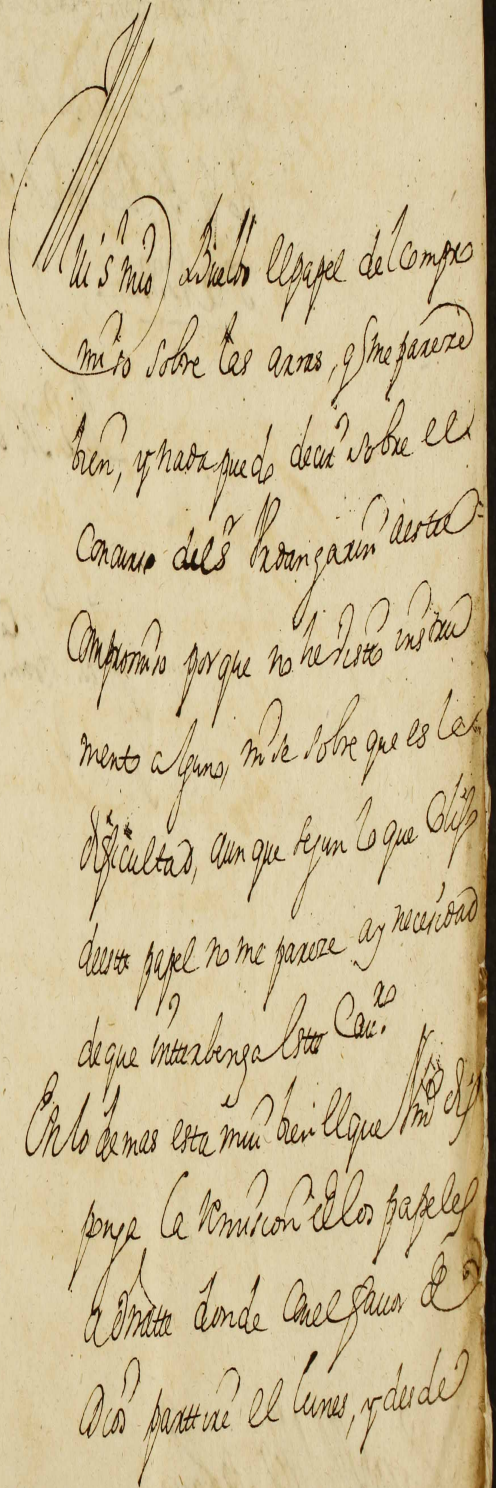 Mui Sr mio Buelbo el papel del compro
miso sobre las arras, q me pareze
bien, y nada puedo decir sobre el
Concurso del Sr Vrdangarin aeste
Compromiso por que no he visto instru
mento alguno, ni se sobre que es la
dificultad, aunque segun lo que colijo
deeste papel no me pareze ay necesidad
de que interbenga este Cauro
En lo demas está mui bien el que Vmd dis
ponga la remision de los papeles
a donde con el fauor de
Dios partire el lunes, y desde